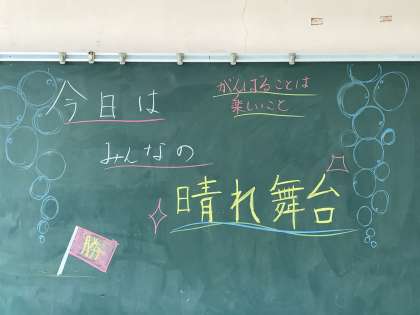 今日は
がんばることは
楽しいこと
みんなの
晴れ舞台
勝